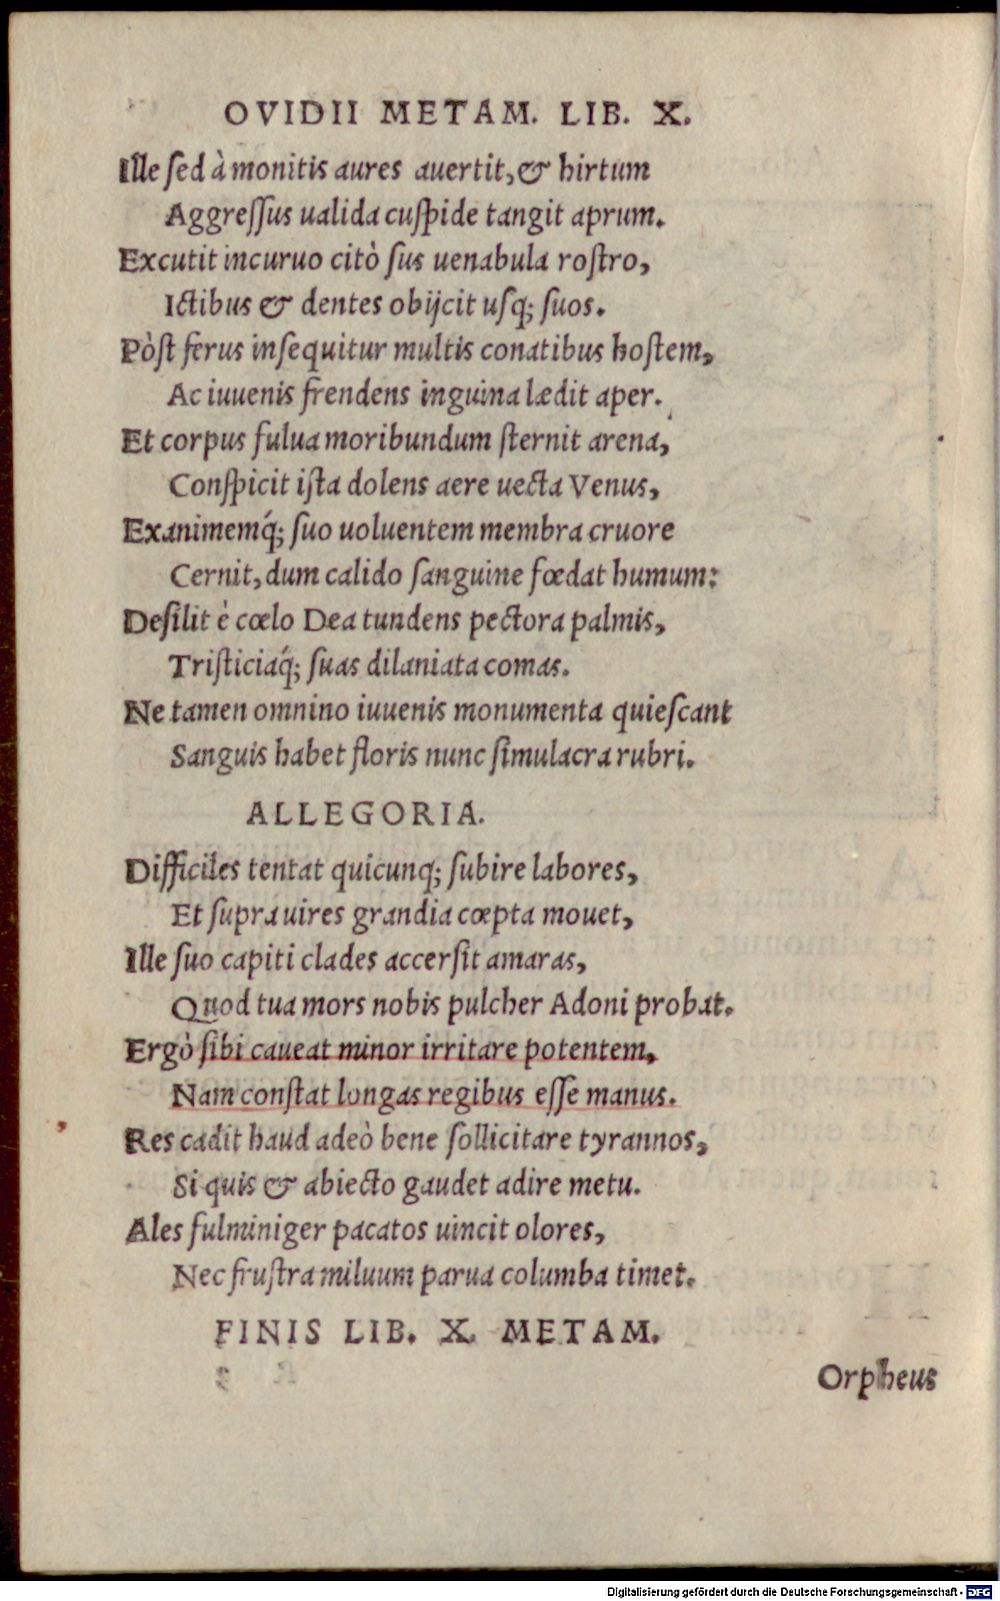 OVIDII METAM. LIB. X.
Ille ſed à monitis aures auertit, & hirtum
Aggreſſus ualida cuſpide tangit aprum.
Excutit incuruo citò ſus uenabula roſtro,
Ictibus & dentes obijcit uſq; ſuos.
Pòſt ferus inſequitur multis conatibus hoſtem,
Ac iuuenis frendens inguina lædit aper.
Et corpus fulua moribundum ſternit arena,
Conſpicit iſta dolens aere uecta Venus,
Exanimemq́; ſuo uoluentem membra cruore
Cernit, dum calido ſanguine fœdat humum:
Deſilit è cœlo Dea tundens pectora palmis,
Triſticiaq́; ſuas dilaniata comas.
Ne tamen omnino iuuenis monumenta quieſcant
Sanguis habet floris nunc ſimulacra rubri.
ALLEGORIA.
Difficiles tentat quicunq; ſubire labores,
Et ſupra uires grandia cœpta mouet,
Ille ſuo capiti clades accerſit amaras,
Quod tua mors nobis pulcher Adoni probat.
Ergò ſibi caueat minor irritare potentem,
Nam conſtat longas regibus eſſe manus.
Res cadit haud adeò bene ſollicitare tyrannos,
Si quis & abiecto gaudet adire metu.
Ales fulminiger pacatos uincit olores,
Nec fruſtra miluum parua columba timet.
FINIS LIB. X. METAM.
Orpheus
Digitalisierung gefördert durch die Deutsche Forschungsgemeinschaft - DFG